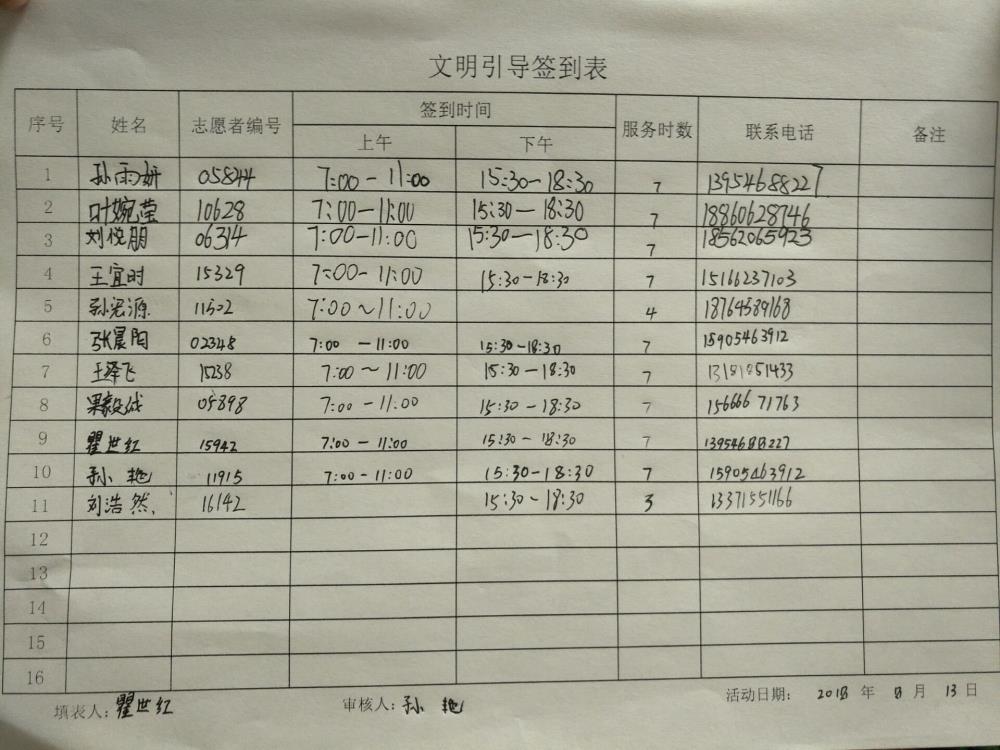 文明引导签到表
序号 姓名 志愿者编号 签到时间 服务时数 联系电话 备注
上午 下午
1 孙雨妍 05844 7:00-11:00 15:30-18:30 7 13954688227
2 叶婉莹 10628 7:00-11:00 15:30-18:30 7 18860628746
3 刘悦朋 06314 7:00-11:00 15:30-18:30 7 18562065923
4 王宜时 15329 7:00-11:00 15:30-18:30 7 15166237103
5 11502 7:00~11:00 4 18764589168
6 张晨阳 02348 7:00-11:00 15:30-18:30 7 15905463912
7 王泽飞 15238 7:00~11:00 15:30-18:30 7
8 05898 7:00-11:00 15:30-18:30 7 15666671763
9 瞿世红 15942 7:00-11:00 15:30-18:30 7 13954688227
10 孙艳 11915 7:00-11:00 15:30-18:30 7 15905463912
11 刘浩然. 16142 15:30-18:30 3 13371551166
12
13
14
15
16
填表人:瞿世红 审核人:孙艳 活动日期: 2018年8月13日